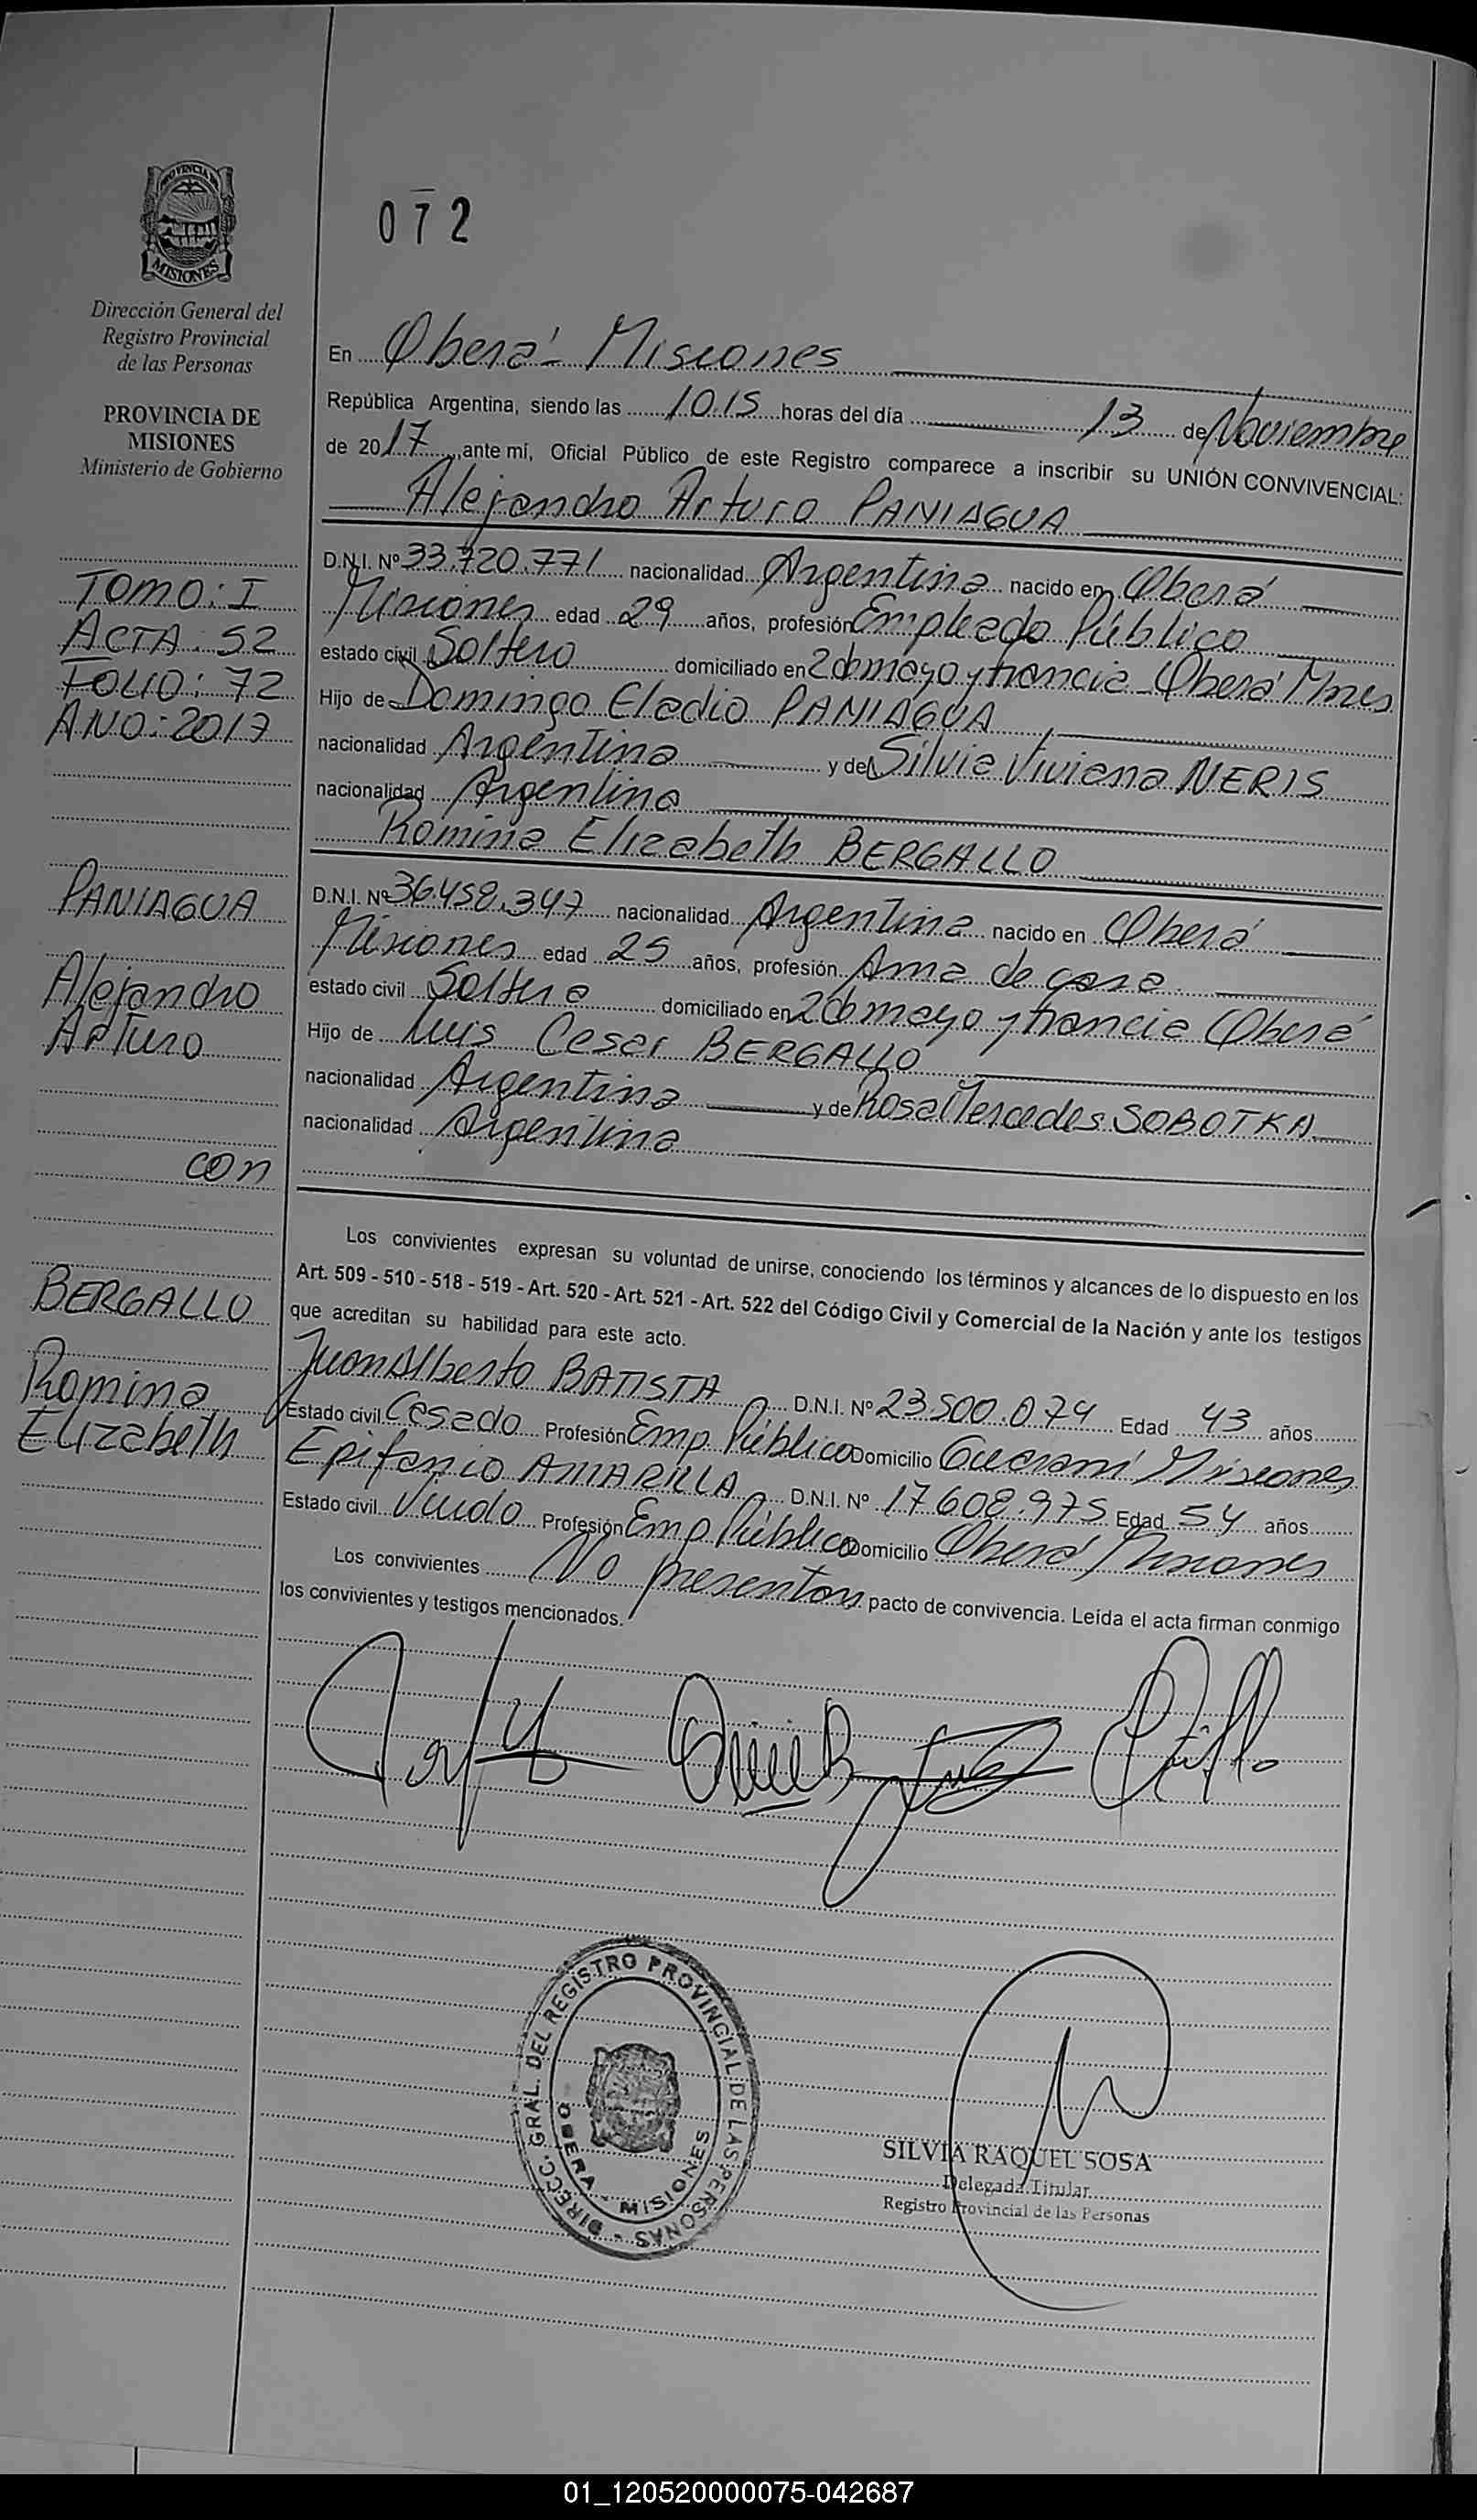 PROVINCIA DE
MISIONES
Dirección General del
Registro Provincial
de las Personas
PROVINCIA DE
MISIONES
Ministerio de Gobierno
TOMO: I
ACTA: 52
FOLIO: 72
AÑO: 2017
PANIAGUA
Alejandro
Arturo
con
BERGALLO
Romina
Elizabeth
072
En Oberá - Misiones
República Argentina, siendo las 10.15 horas del día 13 de Noviembre
de 2017, ante mí, Oficial Público de este Registro comparece a inscribir su UNIÓN CONVIVENCIAL:
Alejandro Arturo PANIAGUA
D.N.I. Nº 33.720.771 nacionalidad Argentina nacido en Oberá
Misiones edad 29 años, profesión Empleado Público
estado civil Soltero domiciliado en 2 de mayo y francia - Oberá Mnes
Hijo de Domingo Eladio PANIAGUA
nacionalidad Argentina y de Silvia Viviana NERIS
nacionalidad Argentina
Romina Elizabeth BERGALLO
D.N.I. Nº 36.458.347 nacionalidad Argentina nacido en Oberá
Misiones edad 25 años, profesión Ama de casa
estado civil Soltera domiciliado en 2 de mayo y francia Oberá
Hijo de Luis Cesar BERGALLO
nacionalidad Argentina y de Rosa Mercedes SOBOTKA
nacionalidad Argentina
Los convivientes expresan su voluntad de unirse, conociendo los términos y alcances de lo dispuesto en los
Art. 509 - 510 - 518 - 519 - Art. 520 - Art. 521 - Art. 522 del Código Civil y Comercial de la Nación y ante los testigos
que acreditan su habilidad para este acto.
Juan Alberto BATISTA D.N.I. Nº 23.500.074 Edad 43 años
Estado civil Casado Profesión Emp. Público Domicilio Guaraní Misiones
Epifanio AMARILLA D.N.I. Nº 17.608.975 Edad 54 años
Estado civil Viudo Profesión Emp. Público Domicilio Oberá Misiones
Los convivientes No presentan pacto de convivencia. Leída el acta firman conmigo
los convivientes y testigos mencionados.
DIRECC. GRAL. DEL REGISTRO PROVINCIAL DE LAS PERSONAS -
OBERA - MISIONES
SILVIA RAQUEL SOSA
Delegada Titular
Registro Provincial de las Personas
01_120520000075-042687